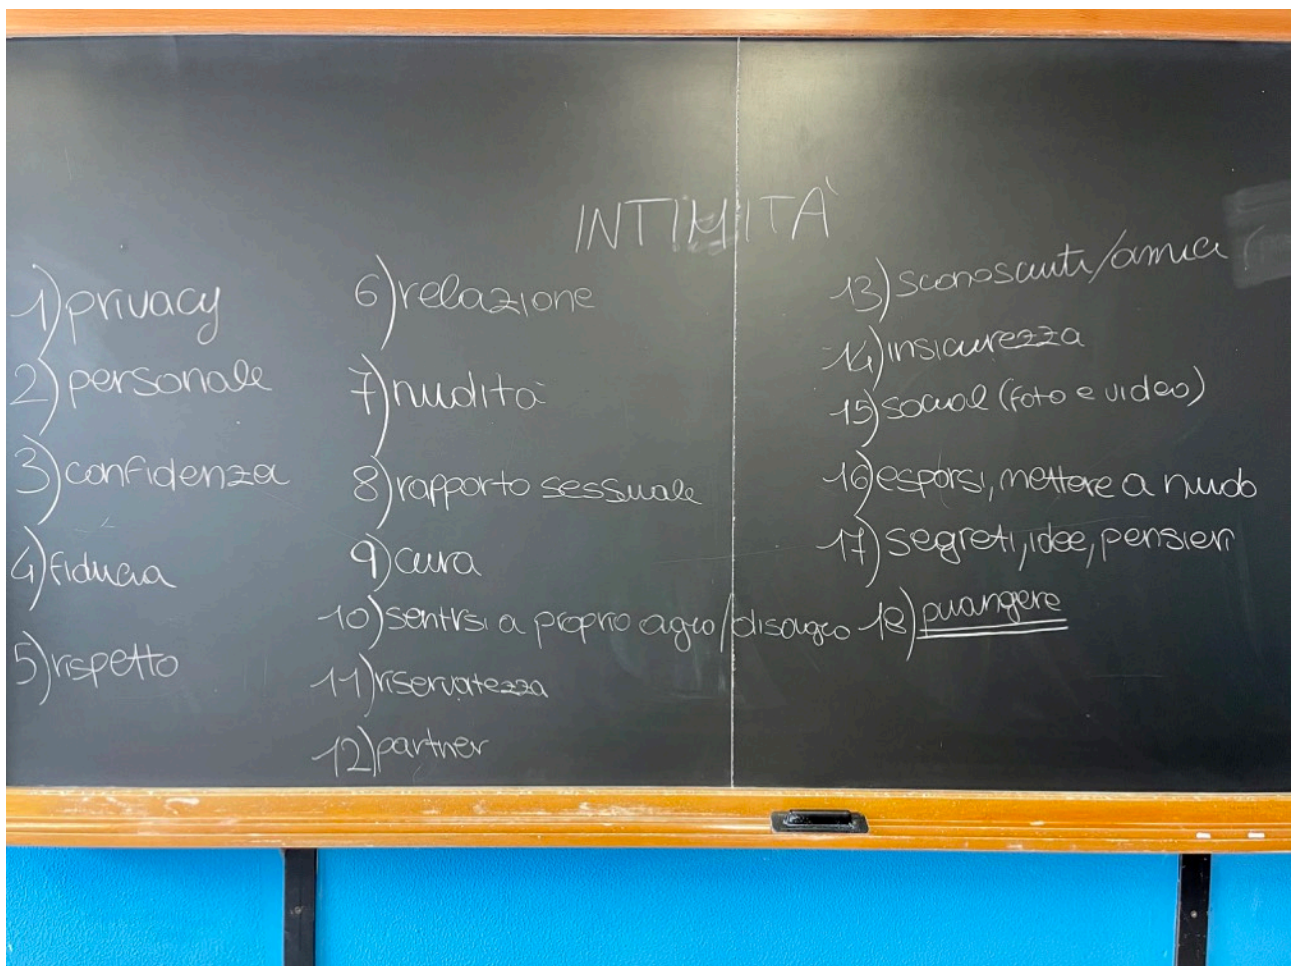 INTIMITÀ
1) privacy
2) personale
3) confidenza
4) fiducia
5) rispetto
6) relazione
7) nudità
8) rapporto sessuale
9) cura
10) sentirsi a proprio agio/disagio
11) riservatezza
12) partner
13) sconosciuti/amici (
14) insicurezza
15) social (foto e video)
16) esporsi, mettere a nudo
17) segreti, idee, pensieri
18) piangere